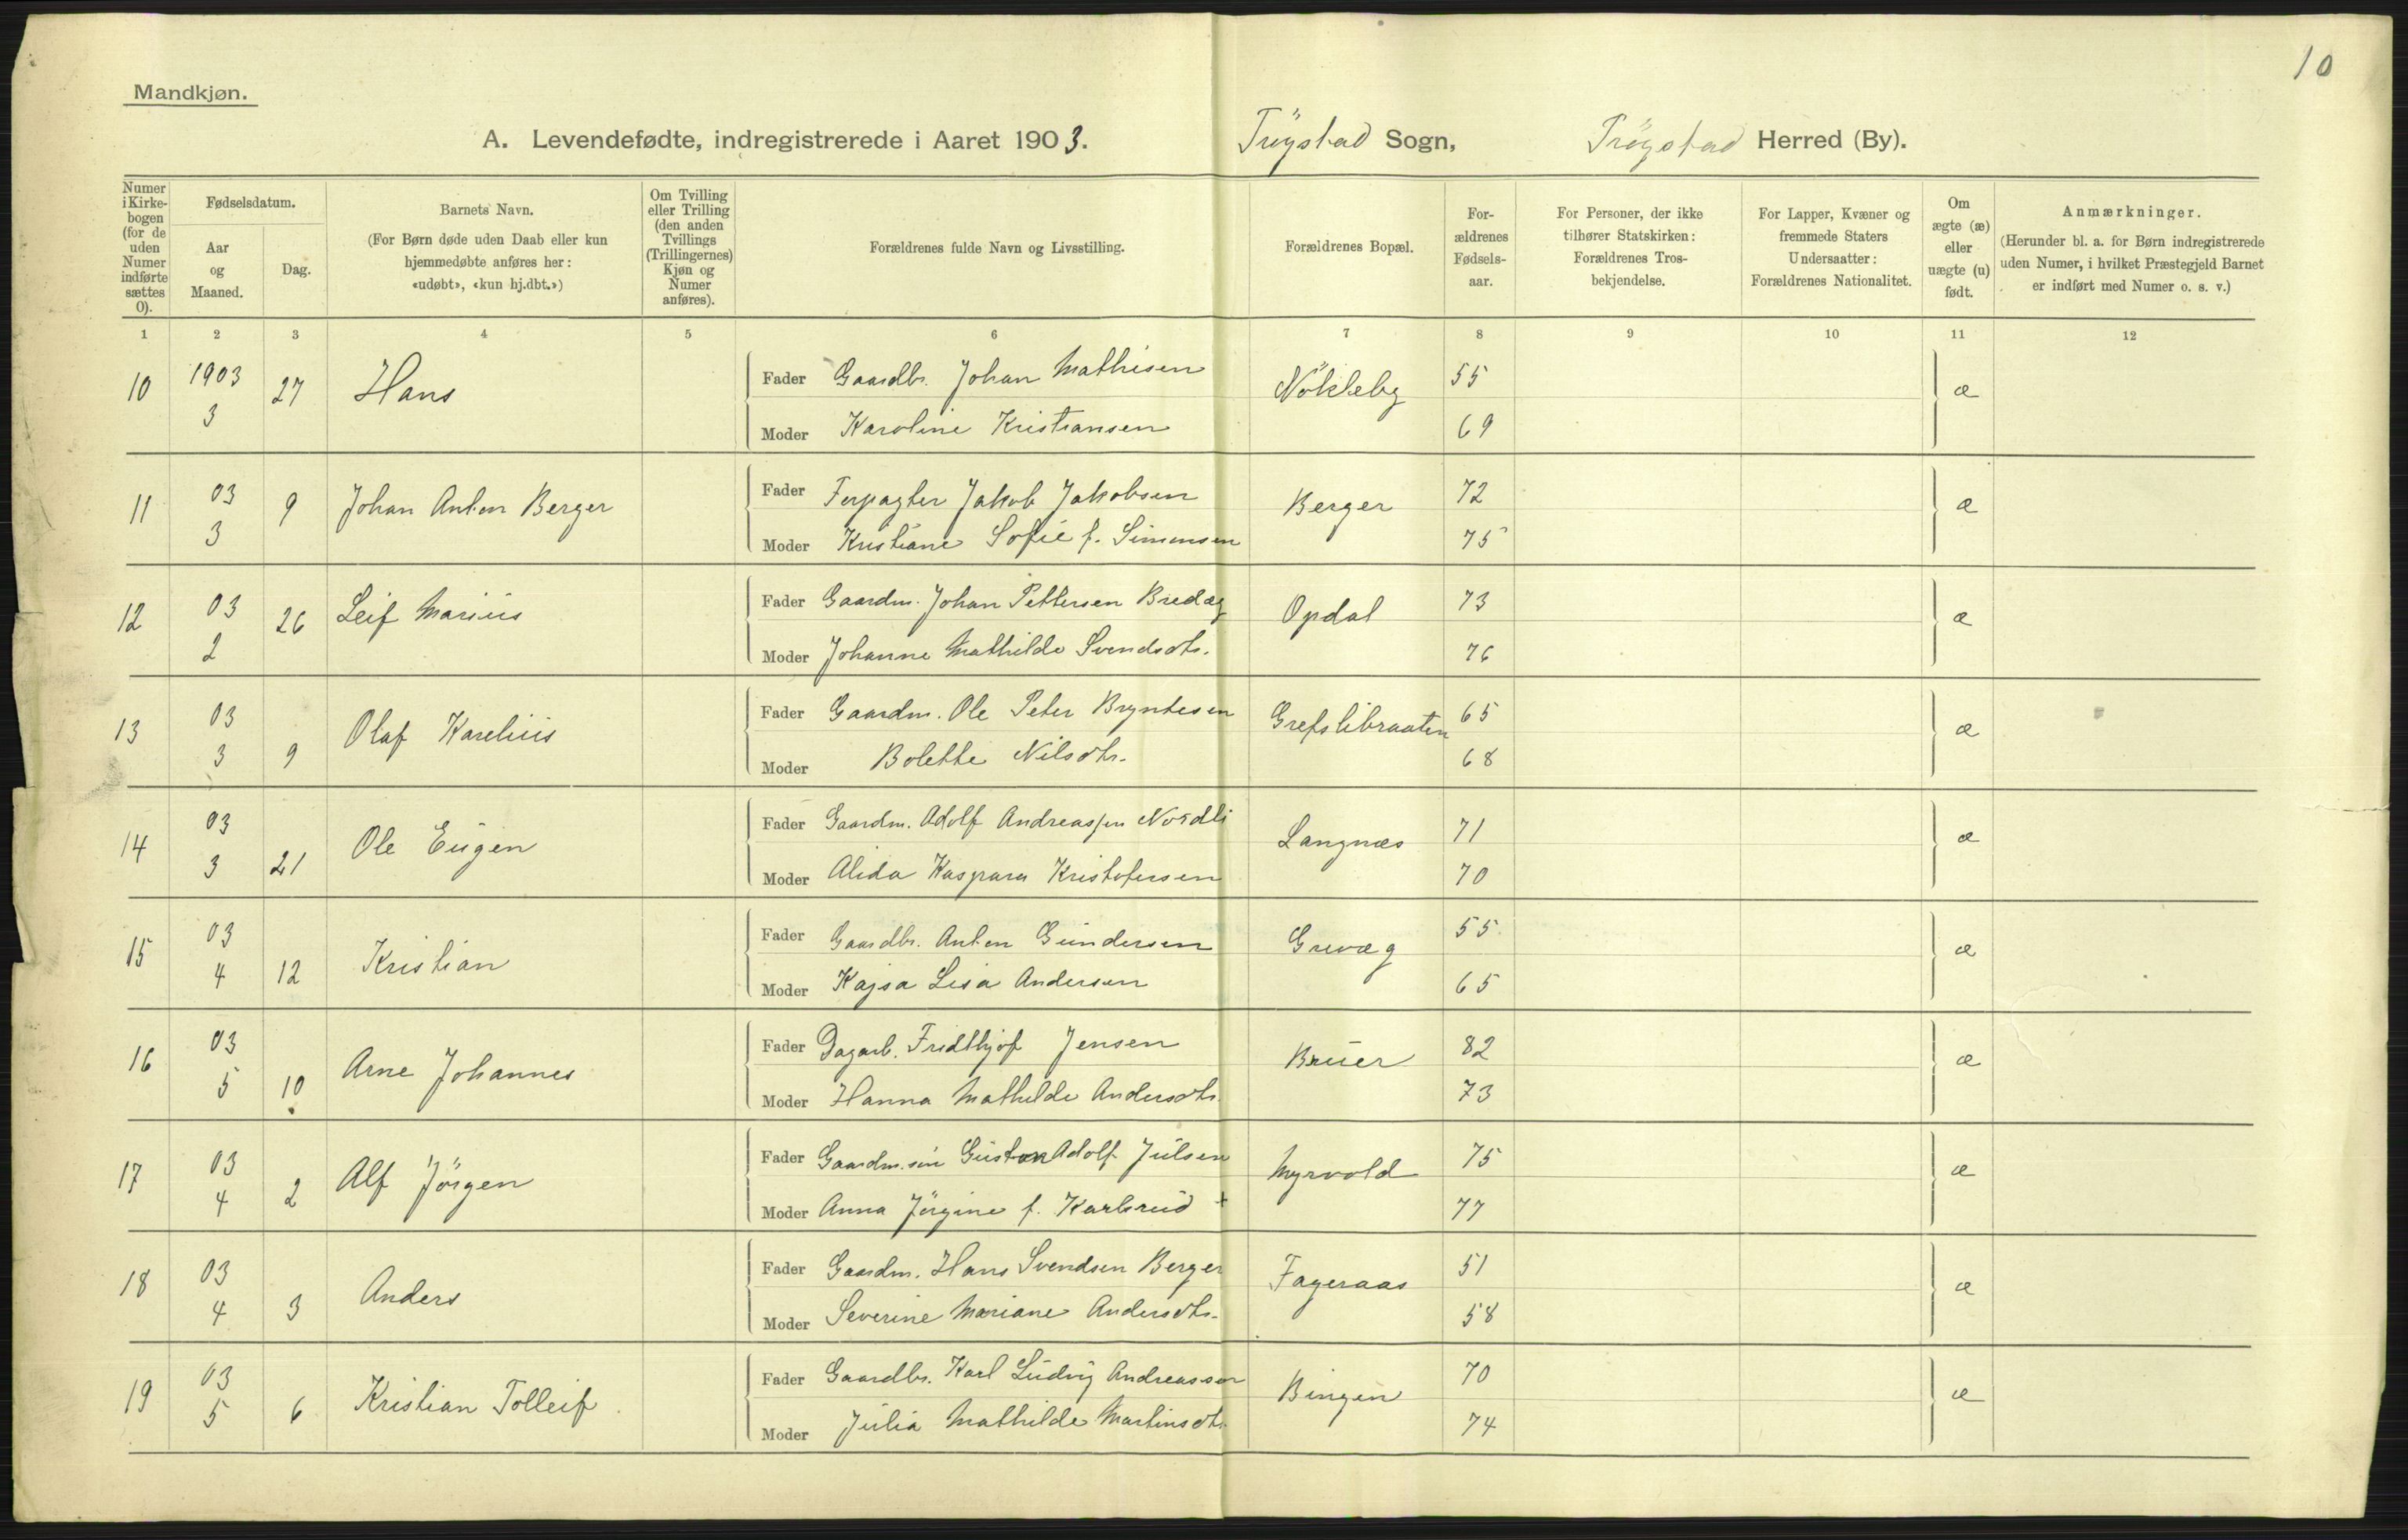 10
Mandkjøn.
A. Levendefødte, indregistrerede i Aaret 1903. Trögstad Sogn, Trögstad Herred (By).
Numer i Kirkebogen (for de uden Numer indførte sættes 0).
Fødselsdatum.
Aar og Maaned.
Dag.
Barnets Navn.
(For Børn døde uden Daab eller kun hjemmedøbte anføres her: «udøbt», «kun hj.dbt.»)
Om Tvilling eller Trilling (den anden Tvillings (Trillingernes) Kjøn og Numer anføres).
Forældrenes fulde Navn og Livsstilling.
Forældrenes Bopæl.
Forældrenes Fødselsaar.
For Personer, der ikke tilhører Statskirken: Forældrenes Trosbekjendelse.
For Lapper, Kvæner og fremmede Staters Undersaatter: Forældrenes Nationalitet.
Om ægte (æ) eller uægte (u) født.
Anmærkninger.
(Herunder bl. a. for Børn indregistrerede uden Numer, i hvilket Præstegjeld Barnet er indført med Numer o. s. v.)
1 2 3 4 5 6 7 8 9 10 11 12
10 1903 3 27 Hans
Fader Gaardbr. Johan Mathisen Nökleby 55 æ
Moder Karoline Kristiansen 69
11 03 3 9 Johan Anton Berger
Fader Forpagter Jakob Jakobsen Berger 72 æ
Moder Kristiane Sofie f. Simensen 75
12 03 2 26 Leif Marius
Fader Gaardm. Johan Pettersen Bredæg Opdal 73 æ
Moder Johanne Mathilde Svendsdtr. 76
13 03 3 9 Olaf Karelius
Fader Gaardm. Ole Peter Bryntesen Grefslibraaten 65 æ
Moder Bolette Nilsdtr. 68
14 03 3 21 Ole Eugen
Fader Gaardm. Adolf Andreassen Nordli Langnæs 71 æ
Moder Alida Kaspara Kristofersen 70
15 03 4 12 Kristian
Fader Gaardbr. Anton Gundersen Grevæg 55 æ
Moder Kajsa Lisa Andersen 65
16 03 5 10 Arne Johannes
Fader Dagarb. Fridthjof Jensen Bruer 82 æ
Moder Hanna Mathilde Andersdtr. 73
17 03 4 2 Alf Jörgen
Fader Gaardm.sön Gustav Adolf Julsen Myrvold 75 æ
Moder Anna Jörgine f. Karlsrud + 77
18 03 4 3 Anders
Fader Gaardm. Hans Svendsen Berger Fageraas 51 æ
Moder Severine Mariane Andersdtr. 58
19 03 5 6 Kristian Tolleif
Fader Gaardbr. Karl Ludvig Andreassen Bingen 70 æ
Moder Julia Mathilde Martinsdtr. 74